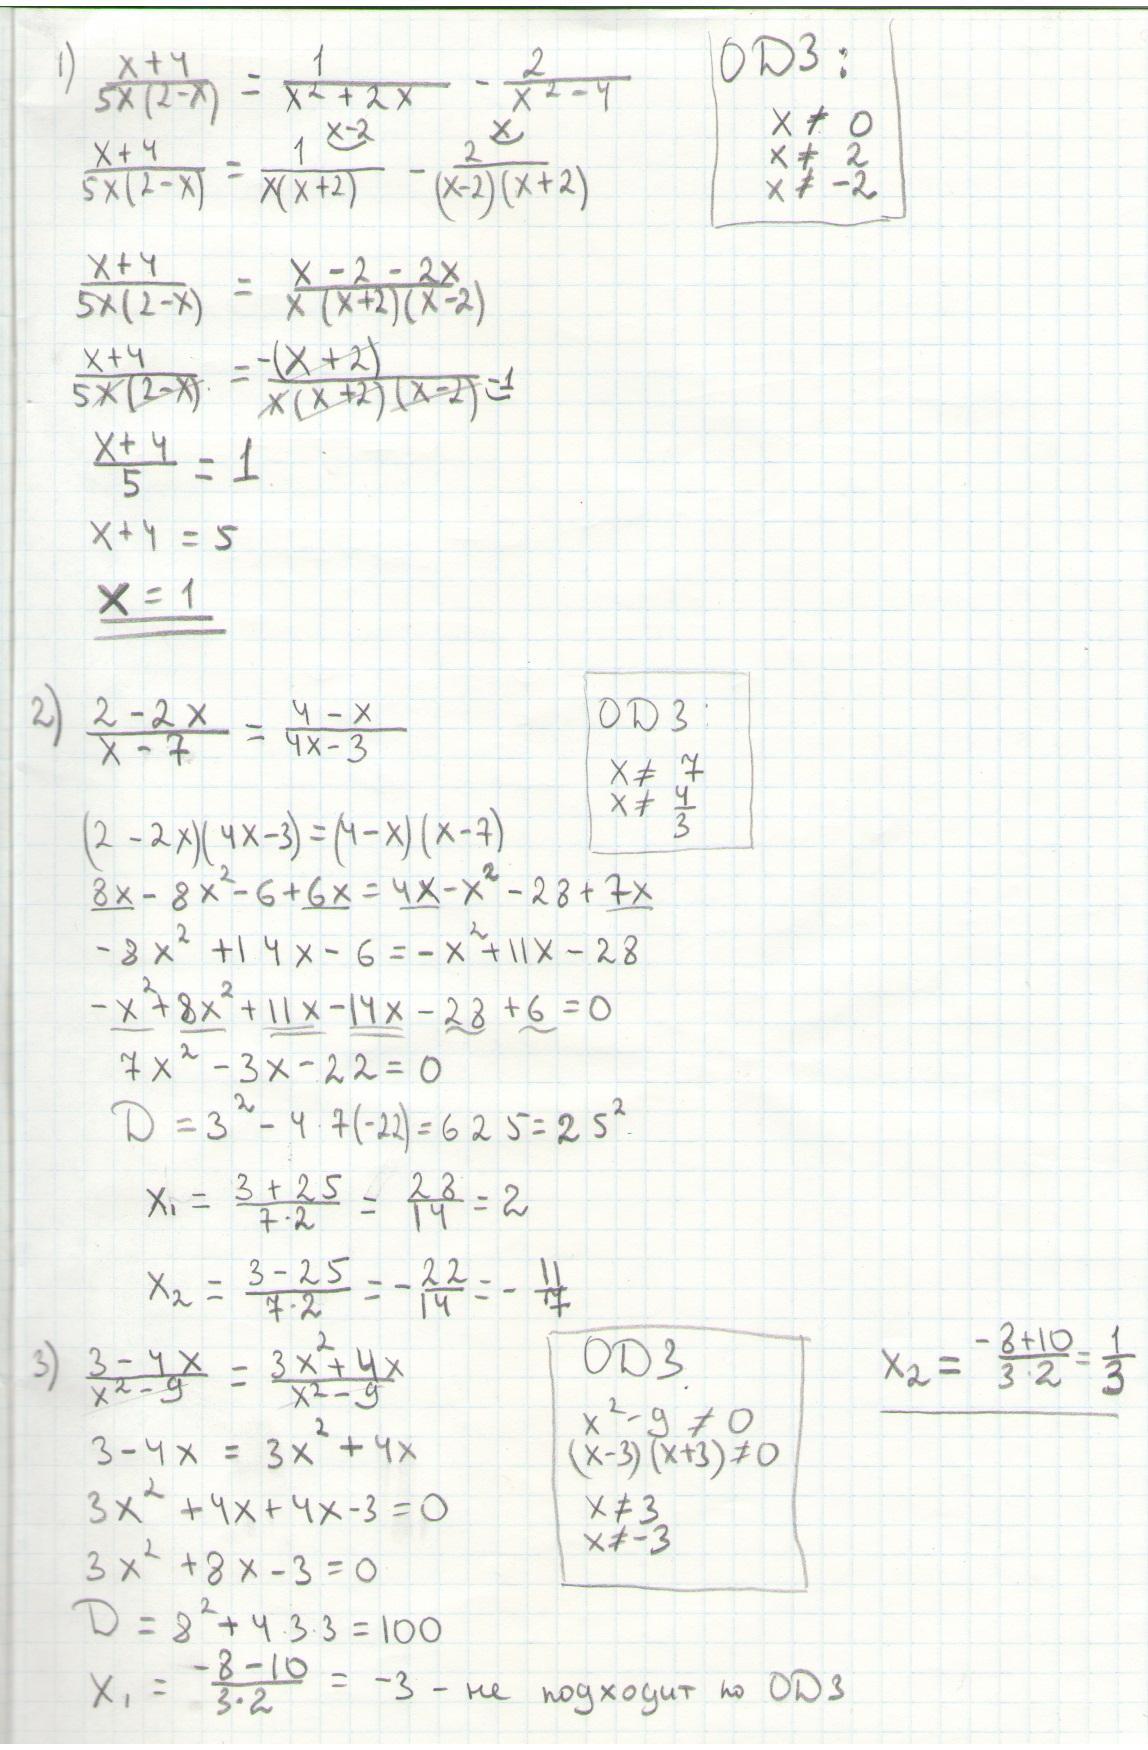 1) (x+4)/(5x(2-x)) = 1/(x²+2x) - 2/(x²-4)
ОДЗ:
x ≠ 0
x ≠ 2
x ≠ -2
x-2 x
(x+4)/(5x(2-x)) = 1/(x(x+2)) - 2/((x-2)(x+2))
(x+4)/(5x(2-x)) = (x-2-2x)/(x(x+2)(x-2))
(x+4)/(5x(2-x)) = -(x+2)/(x(x+2)(x-2)) -1
(x+4)/5 = 1
x+4 = 5
x = 1
2) (2-2x)/(x-7) = (4-x)/(4x-3)
ОДЗ:
x ≠ 7
x ≠ 4/3
(2-2x)(4x-3)=(4-x)(x-7)
8x-8x²-6+6x=4x-x²-28+7x
-8x²+14x-6=-x²+11x-28
-x²+8x²+11x-14x-28+6=0
7x²-3x-22=0
D=3²-4·7(-22)=625=25²
x₁ = (3+25)/(7·2) = 28/14 = 2
x₂ = (3-25)/(7·2) = -22/14 = -11/7
3) (3-4x)/(x²-9) = (3x²+4x)/(x²-9)
ОДЗ
x²-9≠0
(x-3)(x+3)≠0
x≠3
x≠-3
3-4x = 3x²+4x
3x²+4x+4x-3=0
3x²+8x-3=0
D = 8²+4·3·3=100
x₁ = (-8-10)/(3·2) = -3 - не подходит по ОДЗ
x₂ = (-8+10)/(3·2) = 1/3